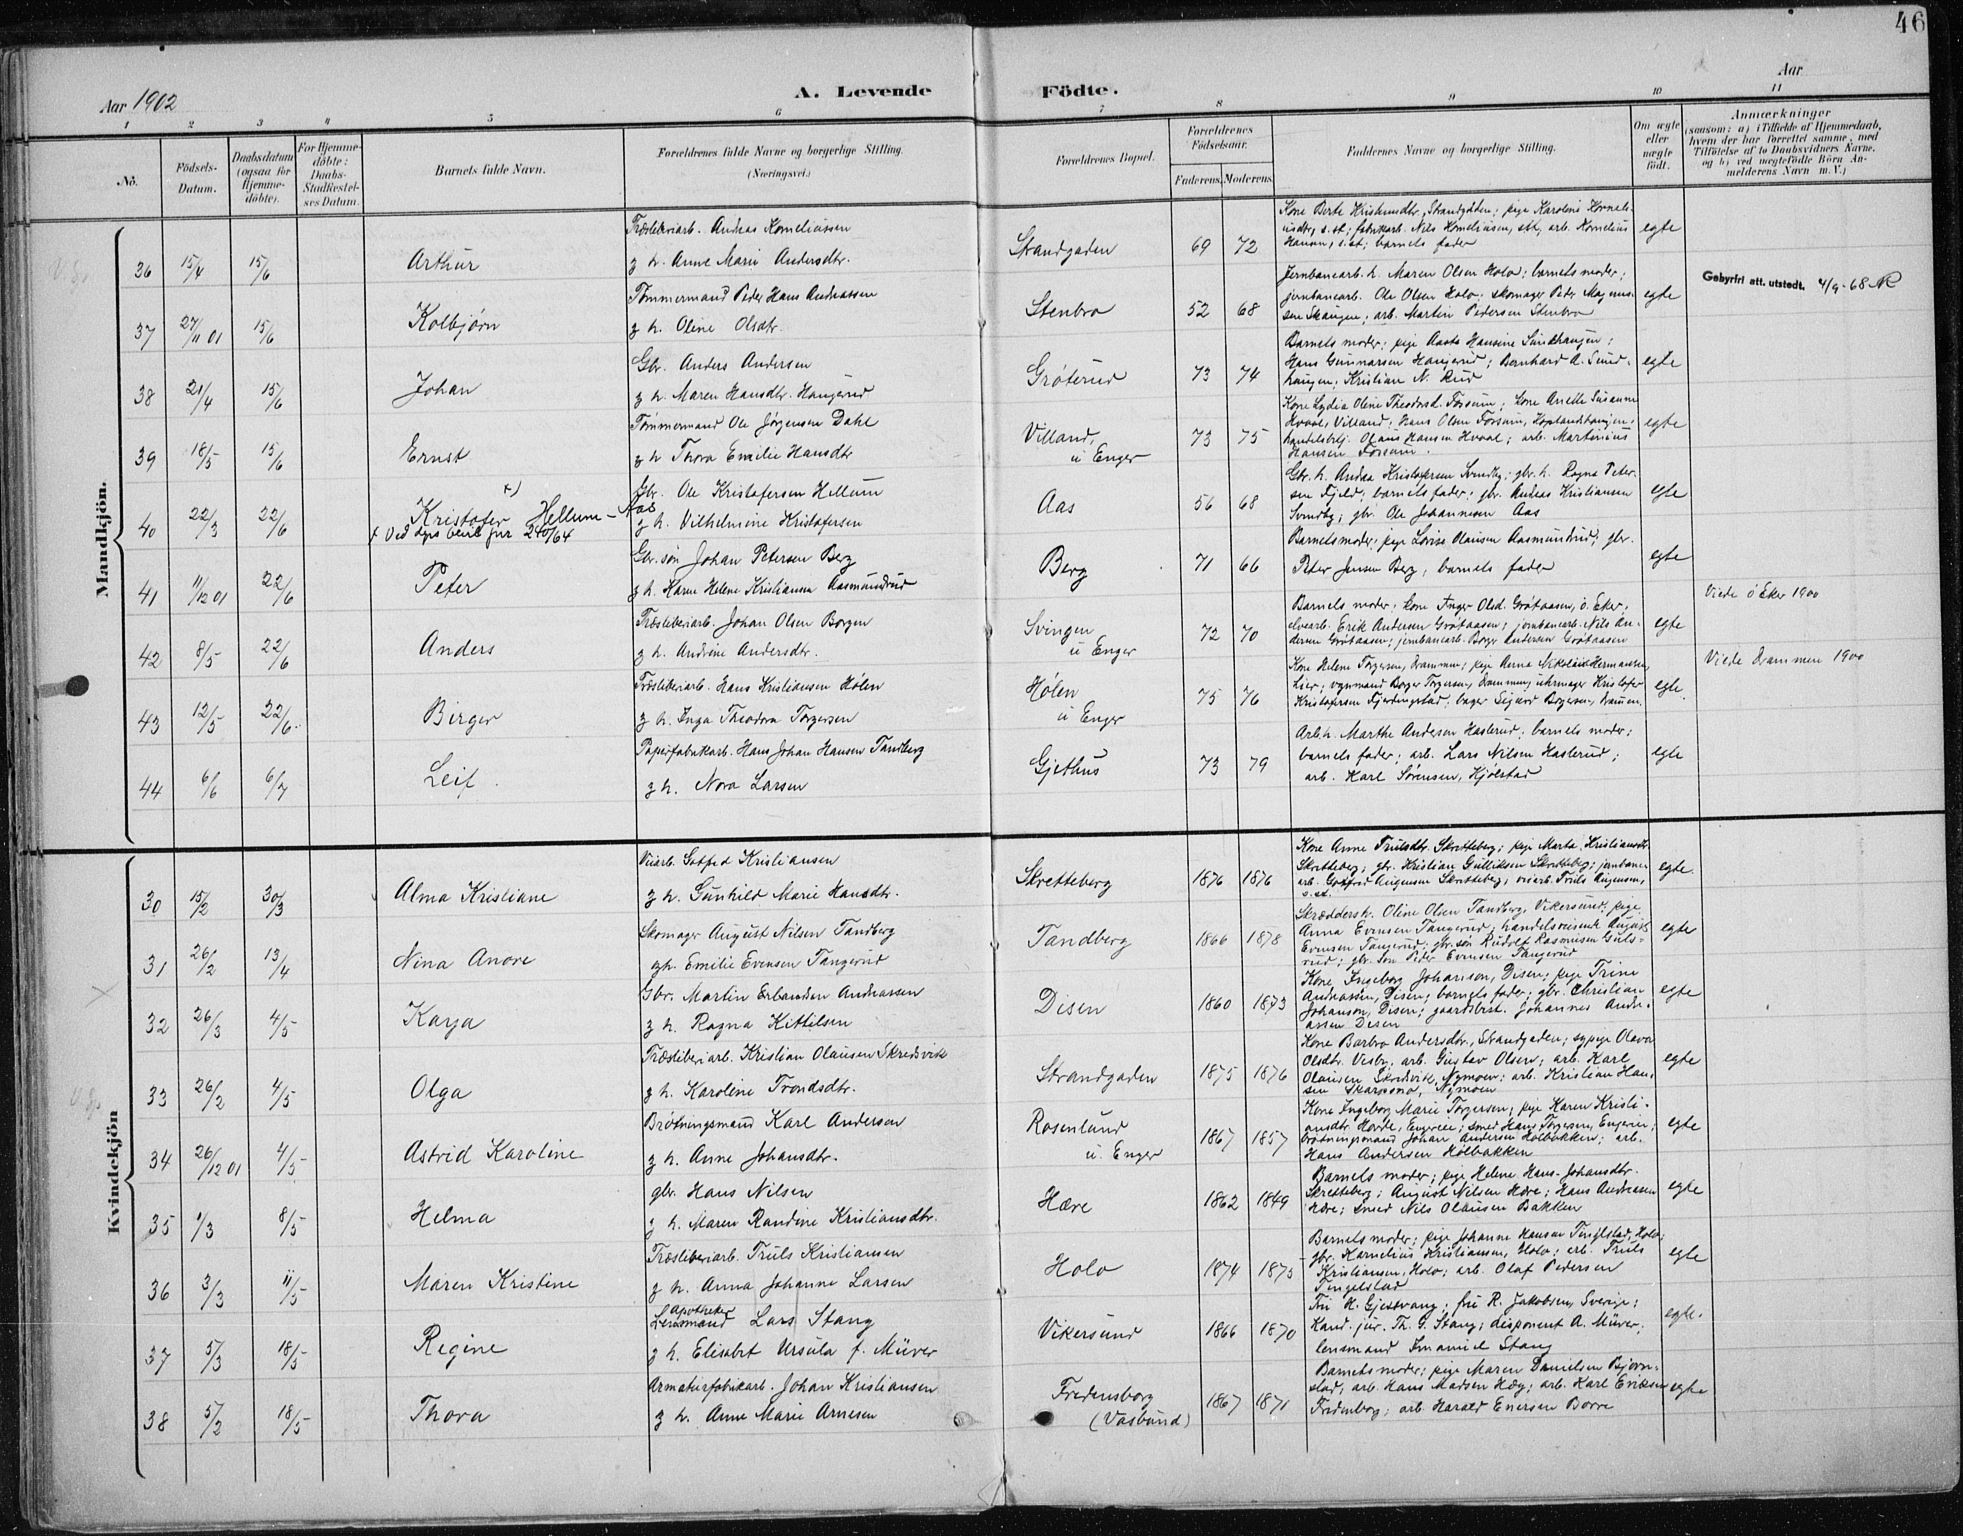 46
Aar 1902
A. Levende
Födte.
Aar
1 2 3 4 5 6 7 8 9 10 11
No.
Födsels-Datum.
Daabsdatum (ogsaa for Hjemme-döbte).
For Hjemme-döbte: Daabs-Stadfæstel-ses Datum.
Barnets fulde Navn.
Forældrenes fulde Navne og borgerlige Stilling. (Næringsvei.)
Forældrenes Bopæl.
Forældrenes Födselsaar.
Faderens. Moderens.
Faddernes Navne og borgerlige Stilling.
Om ægte eller uægte födt.
Anmærkninger
(saasom: a) i Tilfælde af Hjemmedaab, hvem der har forrettet samme, med Tilföielse af to Daabsvidners Navne, og b) ved uægtefödte Börn An-melderens Navn m. V.)
Mandkjön.
36 15/4 15/6 Arthur
Træsliberiarb. Andreas Korneliussen
g h. Anne Marie Andersdtr.
Strandgaden 69 72
Hansen, s.st; barnets fader
egte
37 27/11 01 15/6 Kolbjørn
Tømmermand Peder Hans Andreassen
g h. Oline Olsdtr.
Stenbro 52 68
Jernbanearb. h. Maren Olsen Holo; barnets moder;
jernbanearb. Ole Olsen Holo; skomager Peder Magnus-
sen Skangen; arb. Martin Pedersen Stenbro
egte
Gebyrfri att. utstedt. 4/9-68
38 21/4 15/6 Johan
Gbr. Anders Andersen
g h. Maren Hansdtr. Haugerud
Grøterud 73 74
Barnets moder; pige Aasta Hansine Sundhaugen;
Hans Gunnarsen Haugerud; Bernhard A. Sund-
haugen; Kristian N. Rud
egte
39 18/5 15/6 Ernst
Tømmermand Ole Jørgensen Dahl
g h Thora Emilie Hansdtr
Villand, u Enger 73 75
Kone Lydia Oline Theodorsd. Forsum; kone Anette Susanne
Hvaal, Villand; Hans Olsen Forsum,
Olaus Hansen Hvaal; arb. Martinius
Hansen Forsum.
egte
40 22/3 22/6 Kristofer x) Hellum-Aas
x Ved bevil. jnr 240/64
Gbr. Ole Kristofersen Hellum
g h. Vilhelmine Kristofersen
Aas 56 68
Gbr. h. Andrea Kristofersen Svendby; gbr. h. Ragna Peter-
sen Fjeld; barnets fader; gbr. Andreas Kristiansen
Svendby; gbr. Ole Johannesen Aas
egte
41 11/12 01 22/6 Peter
Gbr. søn Johan Petersen Berg
g h. Karen Helene Kristiansen Aasmundrud
Berg 71 66
Barnets moder; pige Lovise Olausen Aasmundrud; gbr.
Peter Jensen Berg, barnets fader
egte
42 8/5 22/6 Anders
Træsliberiarb. Johan Olsen Borgen
g h. Andrine Andersdtr.
Svingen u Enger 72 70
Barnets moder; kone Inger Olsd. Grøtaasen, ö. Eker;
elvearb. Erik Andersen Grøtaasen; jernbanearb. Nils An-
dersen Grøtaasen; jernbanearb. Borger Andersen Grøtaasen
egte
Viede ö Eker 1900
43 12/5 22/6 Birger
Træsliberiarb. Hans Kristiansen Hølen
g h. Inga Theodora Torgersen
Hølen u Enger 75 76
Kone Helene Torgersen, Drammen; pige Anna Nikoline Hermansen,
Lier; vognmand Borger Torgersen, Drammen; uhrmager Kristofer
Kristofersen Fjerdingstad; bager Sigurd Borgersen, Drammen.
egte.
Viede Drammen 1900
44 6/6 6/7 Leif
Papirfabrikarb. Hans Johan Hansen Tandberg
g h. Nora Larsen
Gjethus 73 79
Arb. h. Marthe Andersen Haslerud; barnets moder;
barnets fader; arb. Lars Nilsen Haslerud;
arb. Karl Sørensen, Kjølstad
egte
Kvindekjön
30 15/2 30/3 Alma Kristiane
Veiarb. Gotfred Kristiansen
g h. Gunhild Marie Hansdtr.
Skretteberg 1876 1876
Kone Anne Trulsdtr. Skretteberg; pige Marta Kristiansdtr.
Skretteberg; gbr. Kristian Gulliksen Skretteberg; jernbane-
arb. Gotfred Augensen Skretteberg; veiarb. Truls Augensen,
s.st.
egte.
31 26/2 13/4 Nina Anore
Skomager August Nilsen Tandberg
gh. Emilie Evensen Tangerud
Tandberg 1866 1878
Skrædersk. Oline Olsen Tandberg, Vikersund; pige
Anna Evensen Tangerud; handelsreisende August
Evensen Tangerud; gbr. søn Rudolf Rasmusen Guls-
rud; gbr. søn Peder Evensen Tangerud
egte
32 26/3 4/5 Karja
Gbr. Martin Erlandsen Andreassen
g h. Ragna Kittilsen
Disen 1860 1873
Kone Ingeborg Johanson, Disen; pige Trine
Andreassen, Disen; barnets fader; gbr. Christian
Johanson, Disen; gaardsbrst. Johannes Andre-
assen Disen
egte
33 26/2 4/5 Olga
Træsliberiarb. Kristian Olausen Skredsvik
g h. Karoline Trondsdtr.
Strandgaden 1875 1876
Kone Barbro Andersdtr., Strandgaden; sypige Olava
Olsdtr. Vesby, arb. Gustav Olsen; arb. Karl
Olausen Skredsvik, Nymoen; arb. Kristian Han-
sen Skarssmo, Nymoen
egte
34 26/12 01 4/5 Astrid Karoline
Brøtningsmand Karl Andersen
g h. Anne Johansdtr.
Rosenlund u. Enger 1867 1857
Kone Ingeborg Marie Torgersen; pige Karen Kristi-
ansdtr Horde, Engereie; smed Hans Torgersen, Engereie;
brøtningsmand Johan Andersen Holbakken; arb.
Hans Andersen Holbakken
egte
35 1/3 8/5 Helma
gbr. Hans Nilsen
g h. Maren Randine Kristiansdtr.
Hære 1862 1849
Barnets moder; pige Helene Hans-Johansdtr.
Skretteberg; August Nilsen Hære; Hans Andreasen
Hære; smed Nils Olausen Bakken
egte
36 3/3 11/5 Maren Kristine
Træsliberiarb. Truls Kristiansen
g h. Anna Johanne Larsen
Holo 1874 1875
Barnets moder; pige Johanne Hansen Tingelstad, Holo;
gbr. Kornelius Kristiansen, Holo; arb. Truls
Kristiansen, Holo; arb. Olaf Pedersen
Tingelstad
egte
37 5/3 18/5 Regine
Apotheker
Lensmand Lars Stang
g h. Elisabt Ursula f. Müver
Vikersund 1866 1870
Fru K. Gjestvang; fru R. Jakobsen, Sverige;
Kand. jur. Th. G. Stang; disponent A. Müver;
lensmand Emanuel Stang
egte.
38 5/2 18/5 Thora
Armaturfabrikarb. Johan Kristiansen
g h. Anne Marie Arnesen
Fredensborg (Vasbund) 1867 1871
Barnets moder; pige Maren Danielsen Bjørn-
stad; arb. Hans Madsen Hæg; arb. Karl Eriksen
Fredenborg; arb. Harald Enersen Borre
egte